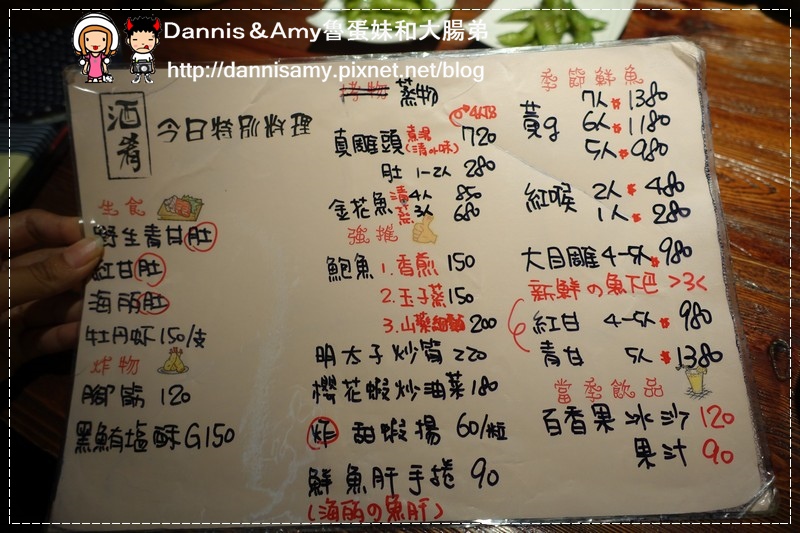 Dannis&Amy魯蛋妹和大腸弟
http://dannisamy.pixnet.net/blog
酒肴
今日特別料理
生食
野生青甘肚
紅甘肚
海丽肚
牡丹虾 150/支
炸物
腳筋 120
黑鮪塩酥G 150
烤物 蒸物
真雕頭 煮湯(清or味) 720
肚 1-2人 280
金花魚 清 4人 850
蒸 3人 680
強推
鮑魚 1.香煎 150
2.玉子蒸 150
3.山藥細麵 200
明太子炒筍 220
櫻花蝦炒油菜 180
炸 甜蝦揚 60/粒
鮮魚肝手捲 90
(海丽の魚肝)
季節鮮魚
黃g 7人 $1380
6人 $1180
5人 $980
紅喉 2人 $480
1人 $280
大目雕 4-5人 $980
新鮮の魚下巴 >3<
紅甘 4-5人 $980
青甘 5人 $1380
當季飲品
百香果冰沙 120
果汁 90